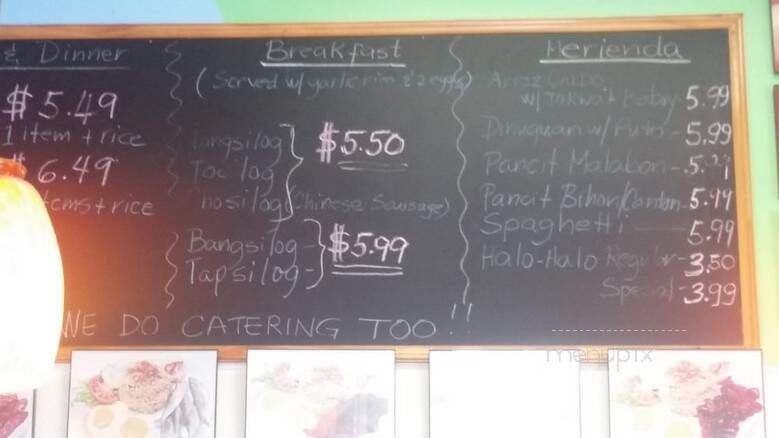 & Dinner
$5.49
1 item + rice
6.49
tems + rice
Breakfast
(Served w/ garlic rice & 2 eggs)
Longsilog
Tocilog
$5.50
hosilog (Chinese Sausage)
Bangsilog -
Tapsilog -
$5.99
Merienda
Arroz Caldo
w/ Tokwa't Baboy - 5.99
Dinuguan w/ Puto - 5.99
Pancit Malabon -
Pancit Bihon/Canton -
Spaghetti 5.99
Halo-Halo Regular - 3.50
Special - 3.99
WE DO CATERING TOO!!
menupix